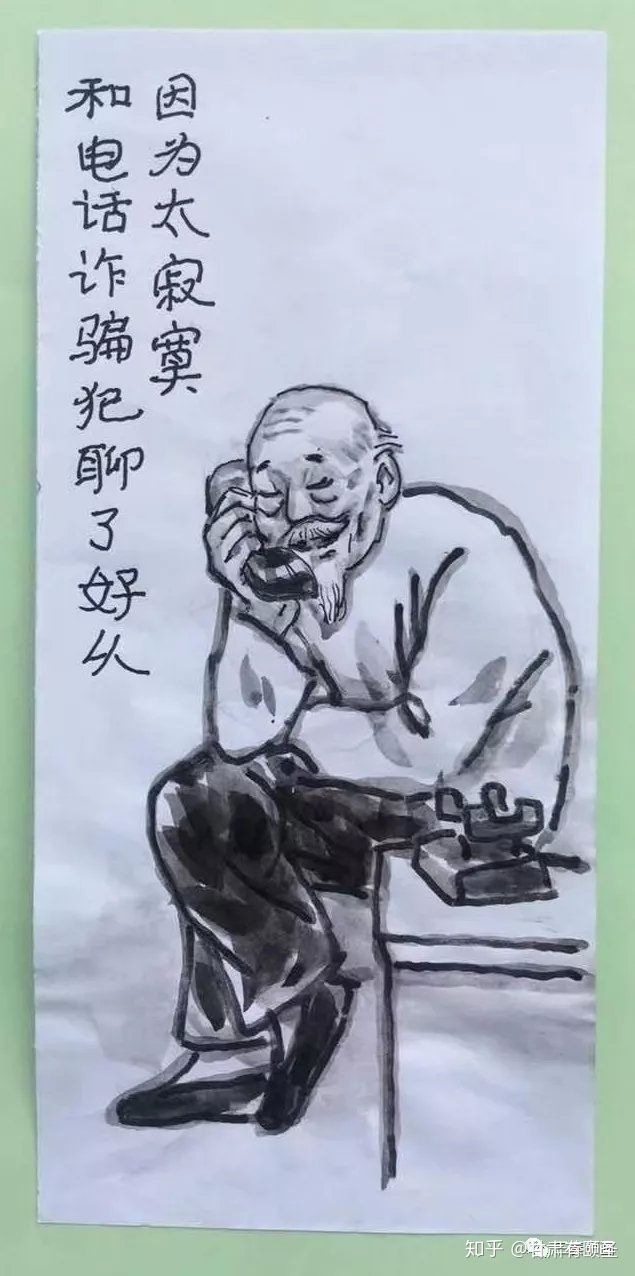 因为太寂寞
和电话诈骗犯聊了好久
知乎 @